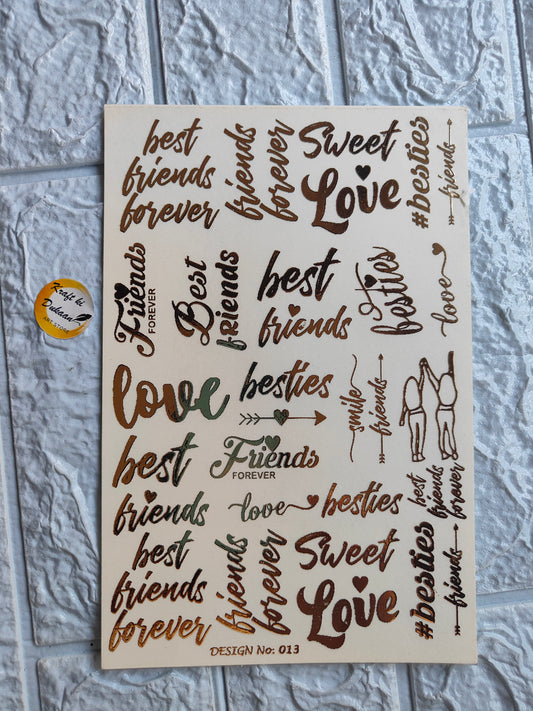 best
friends
forever
friends
forever
Sweet
Love
#besties
friends
Friends
FOREVER
Best
fRiends
best
friends
besties
love
Kraft ki
Dukaan
ART STORE
love
besties
smile
friends
best
friends
Friends
FOREVER
love
besties
best
friends
forever
best
friends
forever
friends
forever
Sweet
Love
#besties
friends
DESIGN No: 013